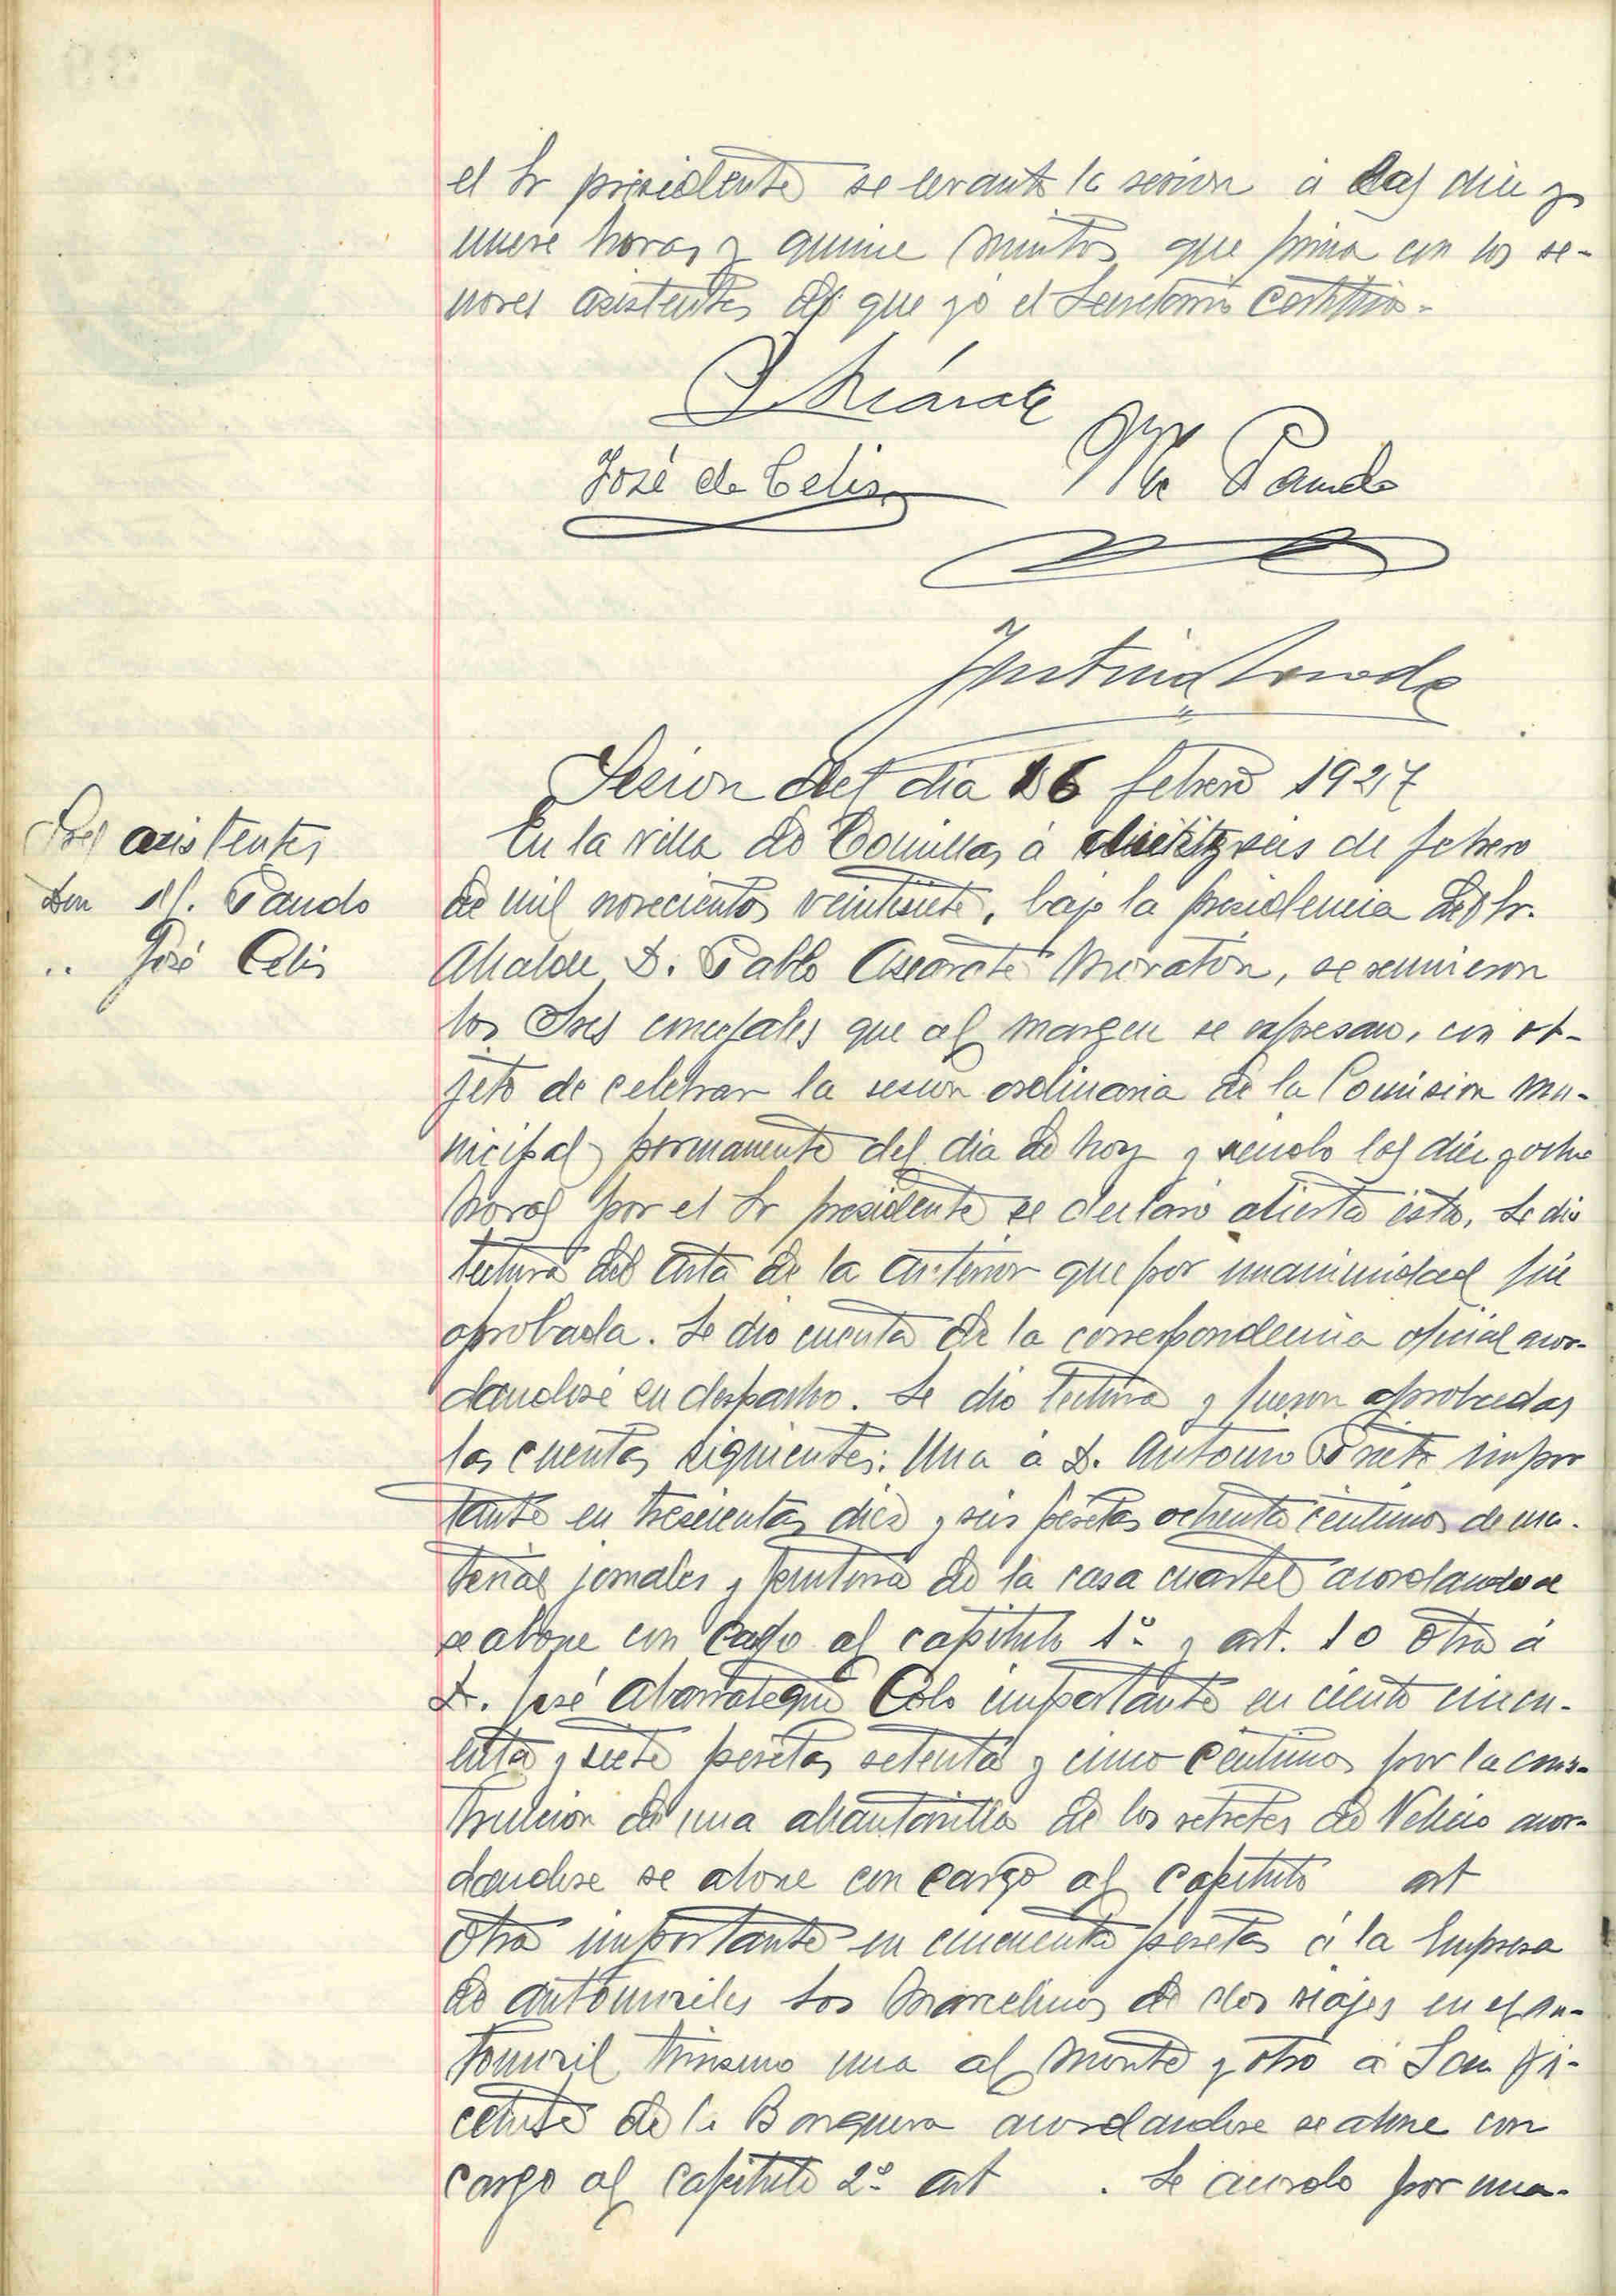 el Sr presidente se levanta la sesion á las diez y
nueve horas y quince minutos que firma con los se-
ñores asistentes de que yo el Secretario Certifico.-
José de Celis
Pando
Sesion del dia 16 febrero 1927
Sres asistentes
Don M. Pando
.. José Celis
En la villa de Comillas á diez y seis de febrero
de mil novecientos veintisiete, bajo la presidencia del Sr.
Alcalde D. Pablo Ascarate Moratón, se reunieron
los Sres concejales que al margen se espresan, con ob-
jeto de celebrar la sesion ordinaria de la Comision mu-
nicipal permanente del dia de hoy y siendo las diez y ocho
horas por el Sr presidente se declaró abierta ésta, Se dio
lectura del acta de la anterior que por unanimidad fué
aprobada. Se dio cuenta de la correspondencia oficial acor-
dandose su despacho. Se dio lectura y fueron aprobadas
las cuentas siguientes: Una á D. Antonio Prieto impor
tante en trescientas diez y seis pesetas ochenta centimos de ma-
terial jornales y pintura de la casa cuartel acordandose
se abone con cargo al capitulo 1º y art. 10 otra á
D. José Abarrategui Colo importante en ciento cincu-
enta y siete pesetas setenta y cinco centimos por la cons-
trucion de una alcantarilla de los retretes de Velecio acor-
dandose se abone con cargo al capitulo art
otra importante en cincuenta pesetas á la Empresa
de automoviles Los Marcelinos de dos viajes en el au-
tomovil turismo una al Monte y otro a San Vi-
cente de la Barquera acordandose se abone con
cargo al capitulo 2º art . Se acordo por una-